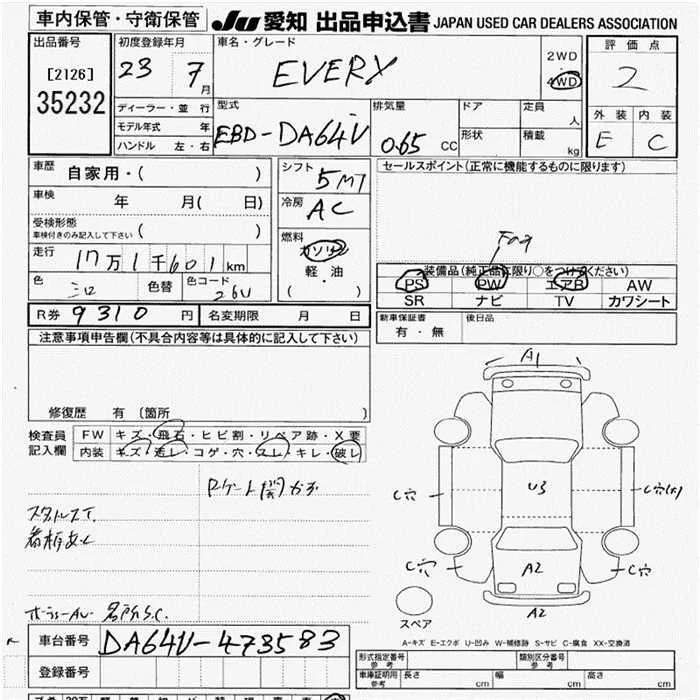 車内保管・守衛保管 JU 愛知 出品申込書 JAPAN USED CAR DEALERS ASSOCIATION
出品番号 初度登録年月 車名・グレード 2WD 評価点
[2126] 23 7月 EVERY 4WD 2
35232 ディーラー・並行 型式 排気量 ドア 定員 人 外装 内装
モデル年式 年 EBD-DA64V 0.65 CC 形状 積載 kg E C
ハンドル 左・右
車歴 自家用・( ) シフト 5MT セールスポイント(正常に機能するものに限ります)
車検 年 月( 日) 冷房 AC
受検形態 ( )
車検付きのみ記入して下さい
走行 17万1千601km 燃料 ガソリン
軽・油
( ・ )
色 色替 色コード 26U
装備品(純正品に限り○をつけてください)
PS PW エアB AW
SR ナビ TV カワシート
R券 9310 円 名変期限 月 日 新車保証書 有・無 後日品
注意事項申告欄(不具合内容等は具体的に記入して下さい)
修復歴 有 〔箇所 〕
検査員 FW キズ・飛石・ヒビ割・リペア跡・X要
記入欄 内装 キズ・汚レ・コゲ・穴・スレ・キレ・破レ
A1
U3
C穴 C穴(大)
C穴 A2 C穴
A2
スペア
A-キズ E-エクボ U-凹み W-補修跡 S-サビ C-腐食 XX-交換済
車台番号 DA64V-473583
登録番号
形式指定番号 参考 類別区分番号 参考
車庫証明用 参考 長さ cm 幅 cm 高さ cm